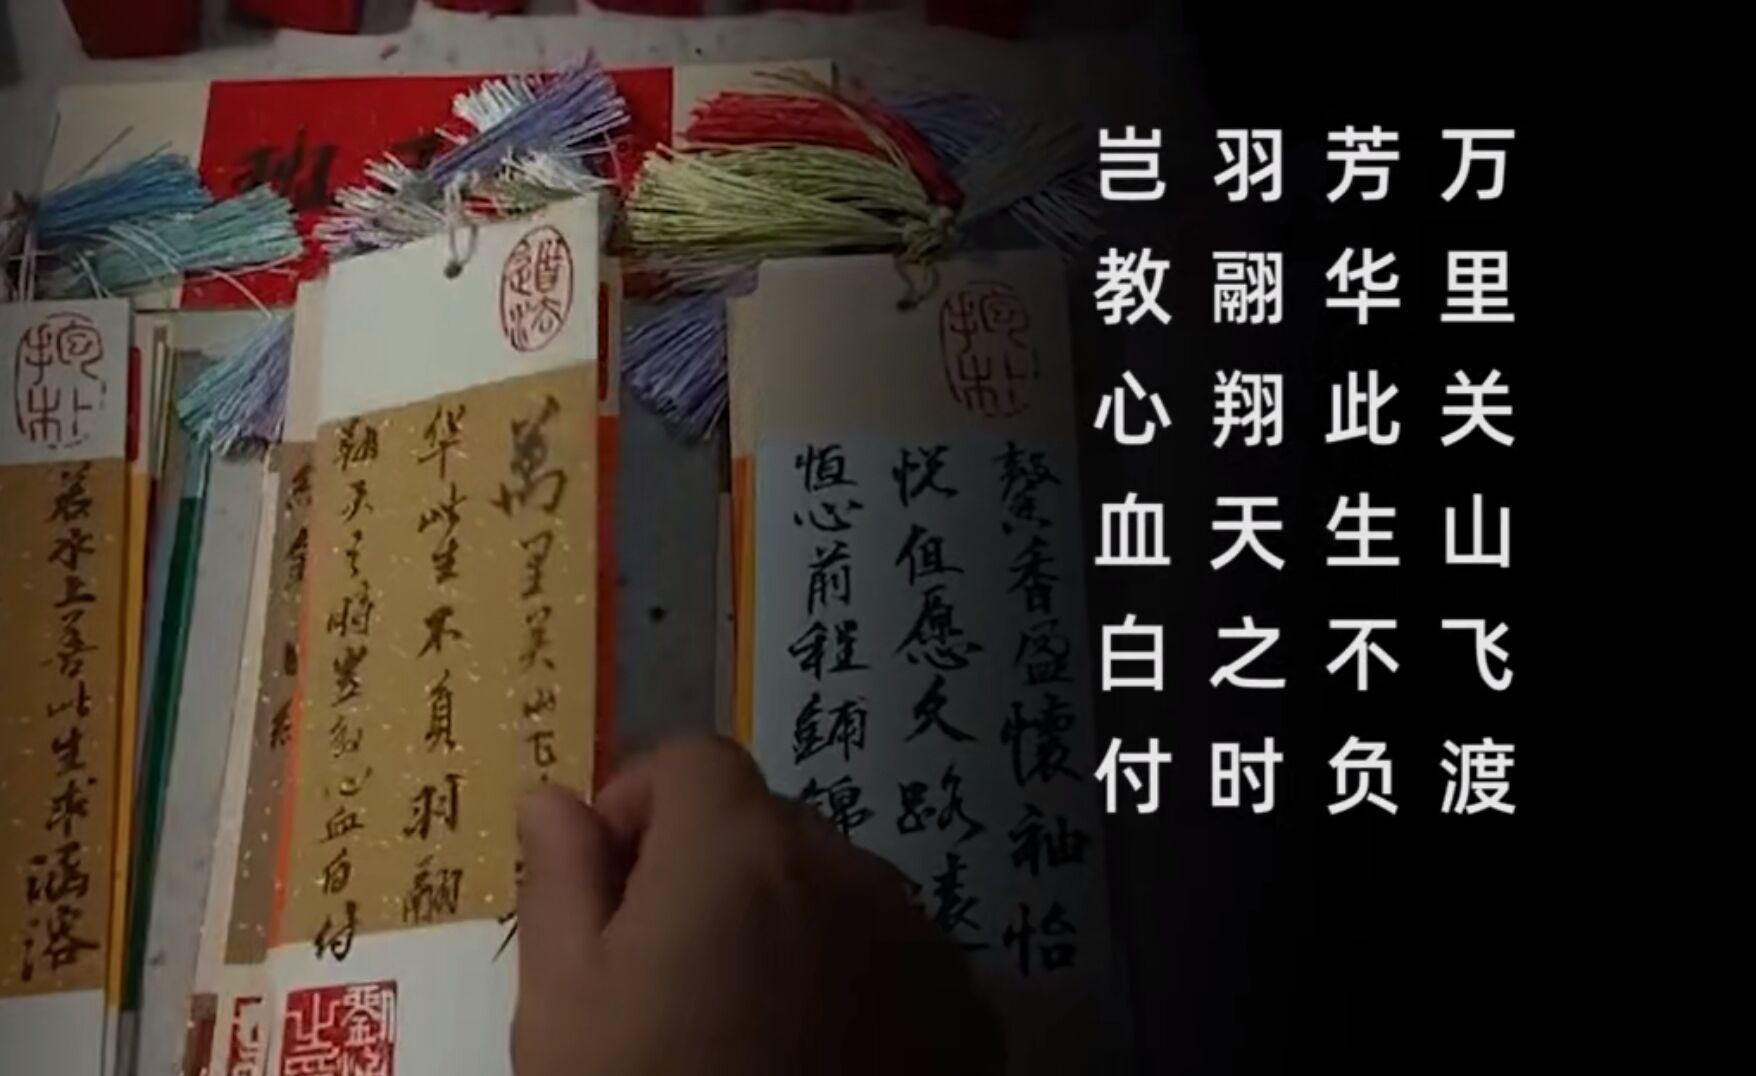 万里关山飞渡
芳华此生不负
羽翮翔天之时
岂教心血白付
萬里关山飞
华此生不负羽翮
翔天之时岂教心血白付
馨香盈懷袖怡
悦但愿久路遠
恒心前程鋪錦
若水上善此生求涵溶